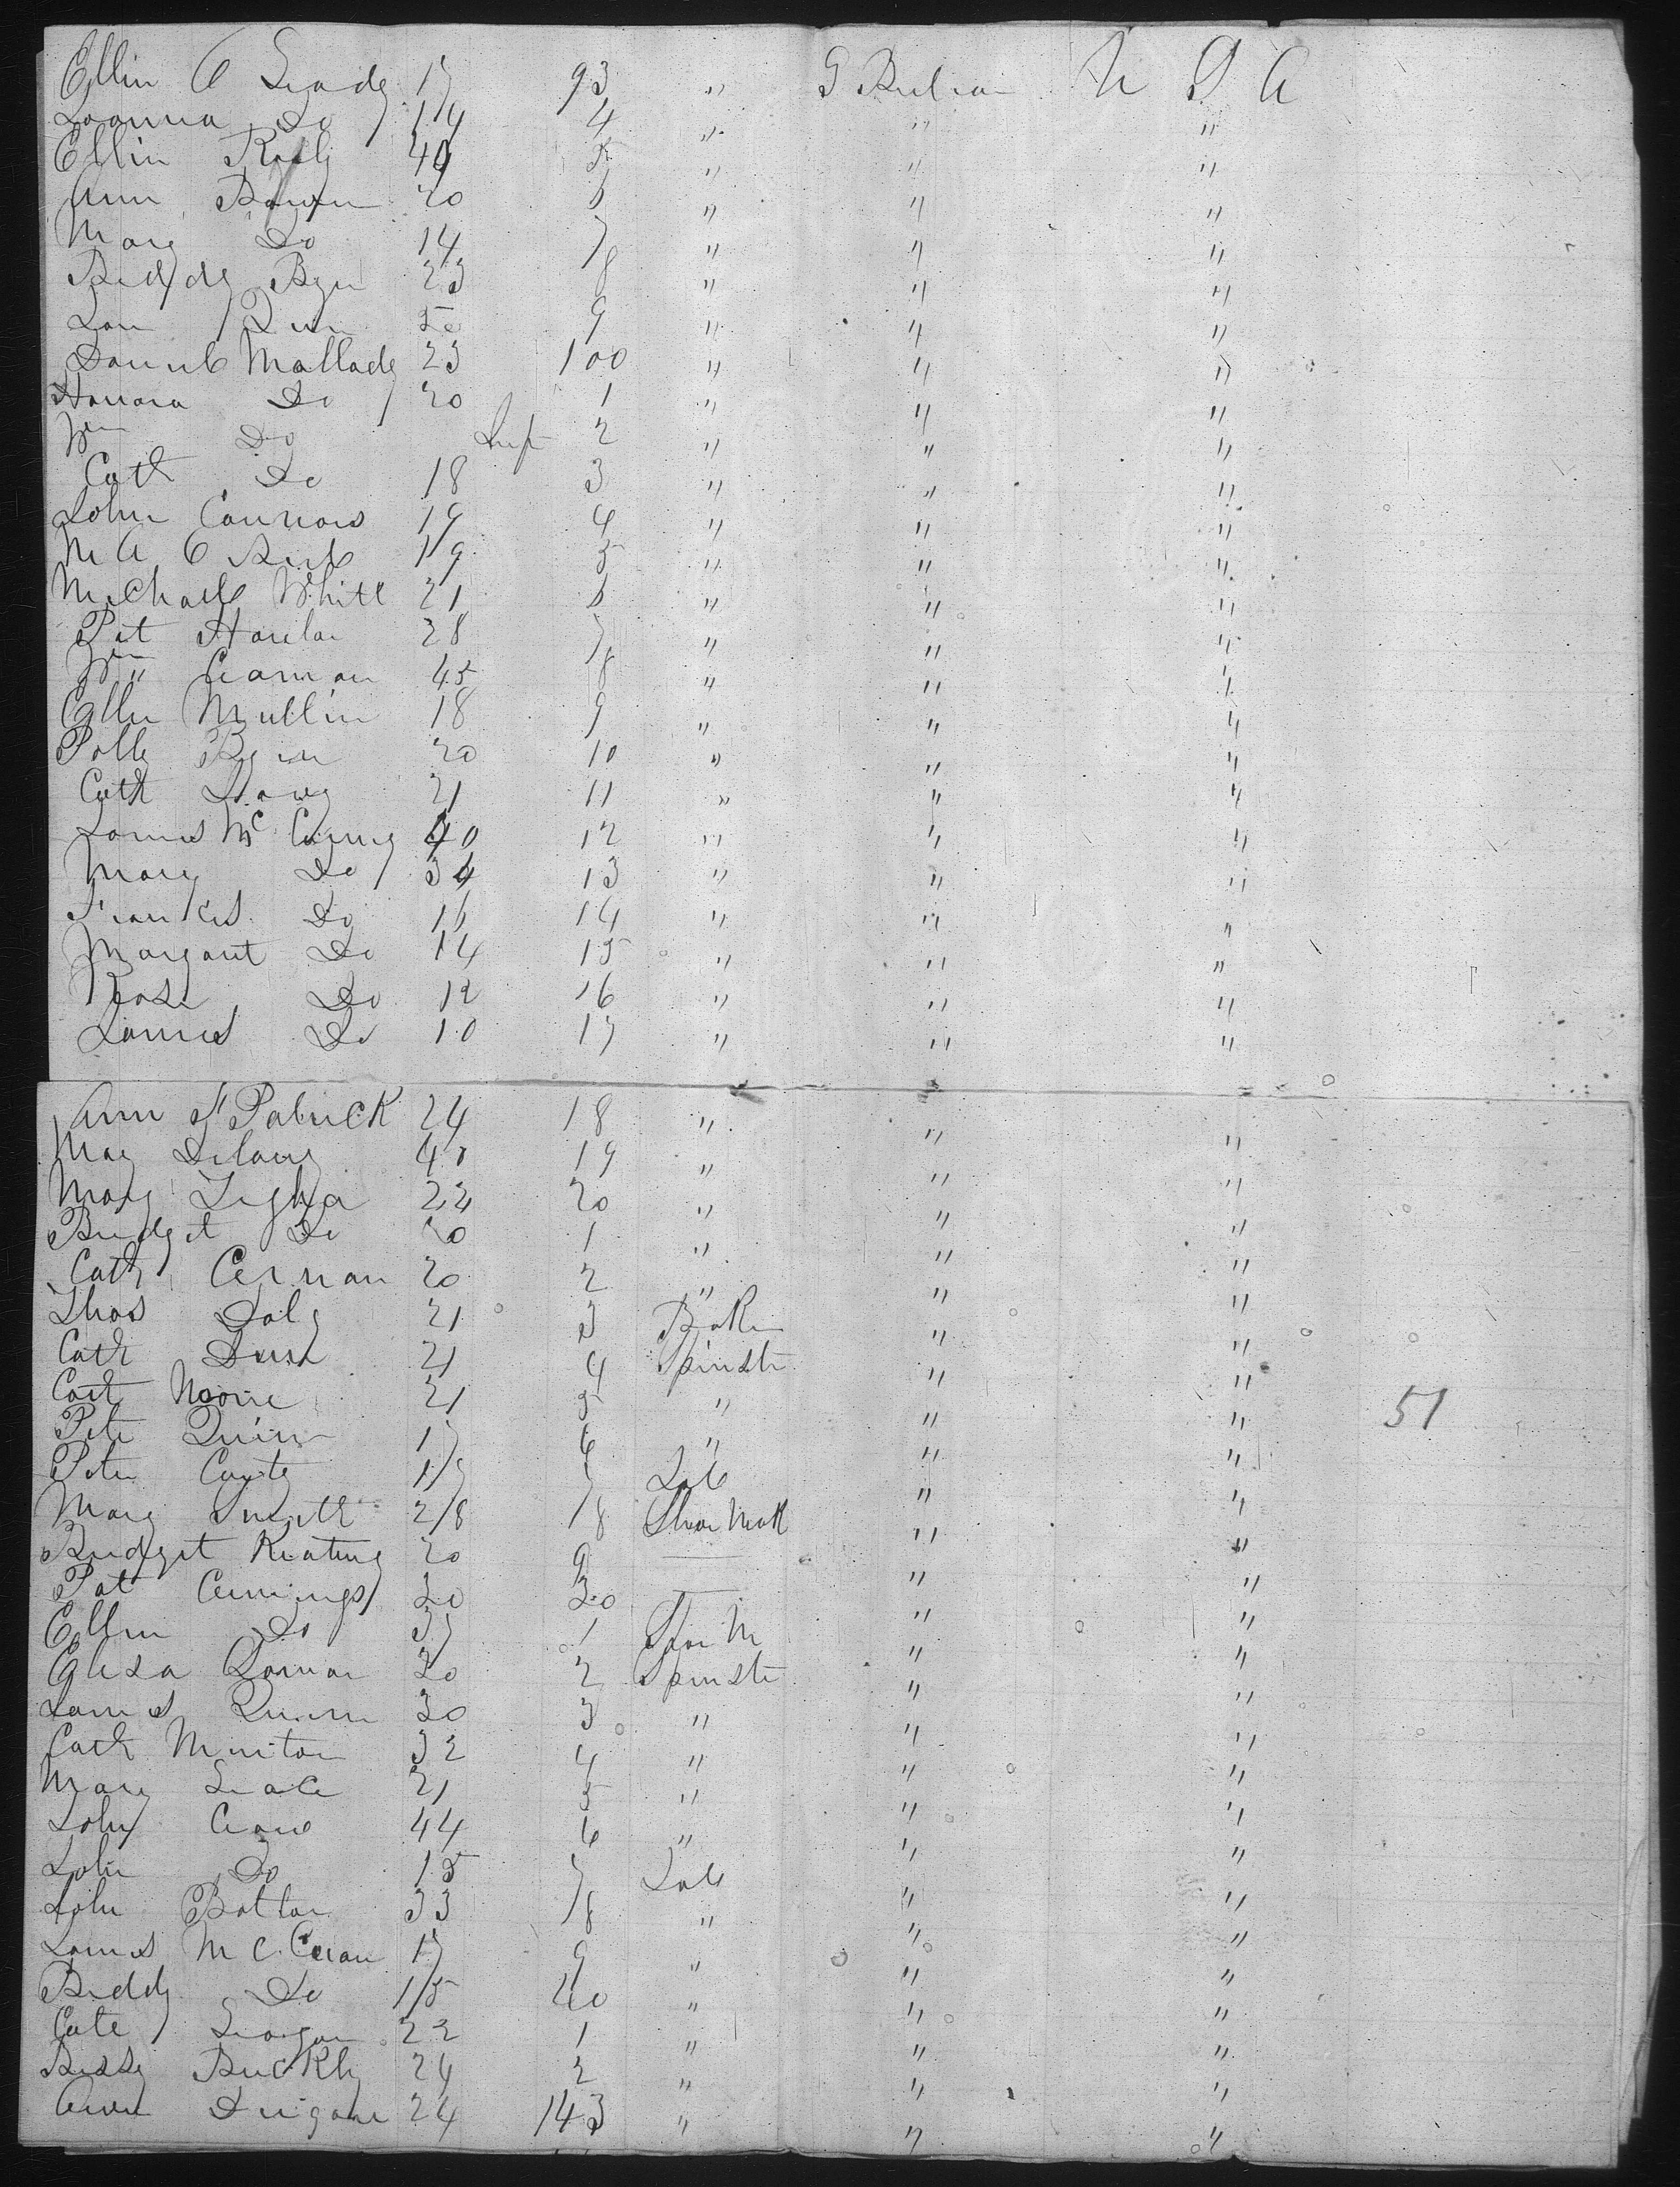 Ellin O Grady 17 93 " G Britian U S A
Joanna Do 14 4 " " "
Ellin Realy 40 5 " " "
Ann Bowen 20 6 " " "
Mary Do 14 7 " " "
Biddy Byrn 23 8 " " "
Quin 50 9 " " "
Daniel Mallady 23 100 " " "
Honora Do 20 1 " " "
Wm Do Inf 2 " " "
Cath Do 18 3 " " "
John Connors 19 4 " " "
M A O Briel 19 5 " " "
Michael White 21 6 " " "
Pat Hanlan 28 7 " " "
Wm " 45 8 " " "
Ellen Mullin 18 9 " " "
Polly Byrn 20 10 " " "
Cath 21 11 " " "
James Mc 40 12 " " "
Mary Do 34 13 " " "
Francis Do 16 14 " " "
Margaret Do 14 15 " " "
Rose Do 12 16 " " "
James Do 10 17 " " "
Ann F Patrick 24 18 " " "
May Delany 40 19 " " "
Mary Tighe 22 20 " " "
Bridget Do 20 1 " " "
Cath Cernan 20 2 " " "
Thos Daly 21 3 Baker " "
Cath Dunn 21 4 Spinstr " "
Cath Moore 21 5 " " " 51
Pete Quinn 17 6 " " "
Peter Canty 17 7 Lab " "
Mary Smith 28 8 Shoe Mak " "
Bridget Keating 20 9 — " "
Pat Cumings 30 30 — " "
Ellen Do 37 1 Shoe M " "
Elisa Gorman 30 2 Spinstr " "
James Quinn 30 3 " " "
Cath Muritan 32 4 " " "
Mary Grace 21 5 " " "
John Crowe 44 6 " " "
John Do 15 7 Lab " "
John Bolton 33 8 " " "
James Mc Curan 17 9 " " "
Biddy Do 15 40 " " "
Cate Grogan 22 1 " " "
Bessy Buckly 24 2 " " "
Duigan 24 143 " " "